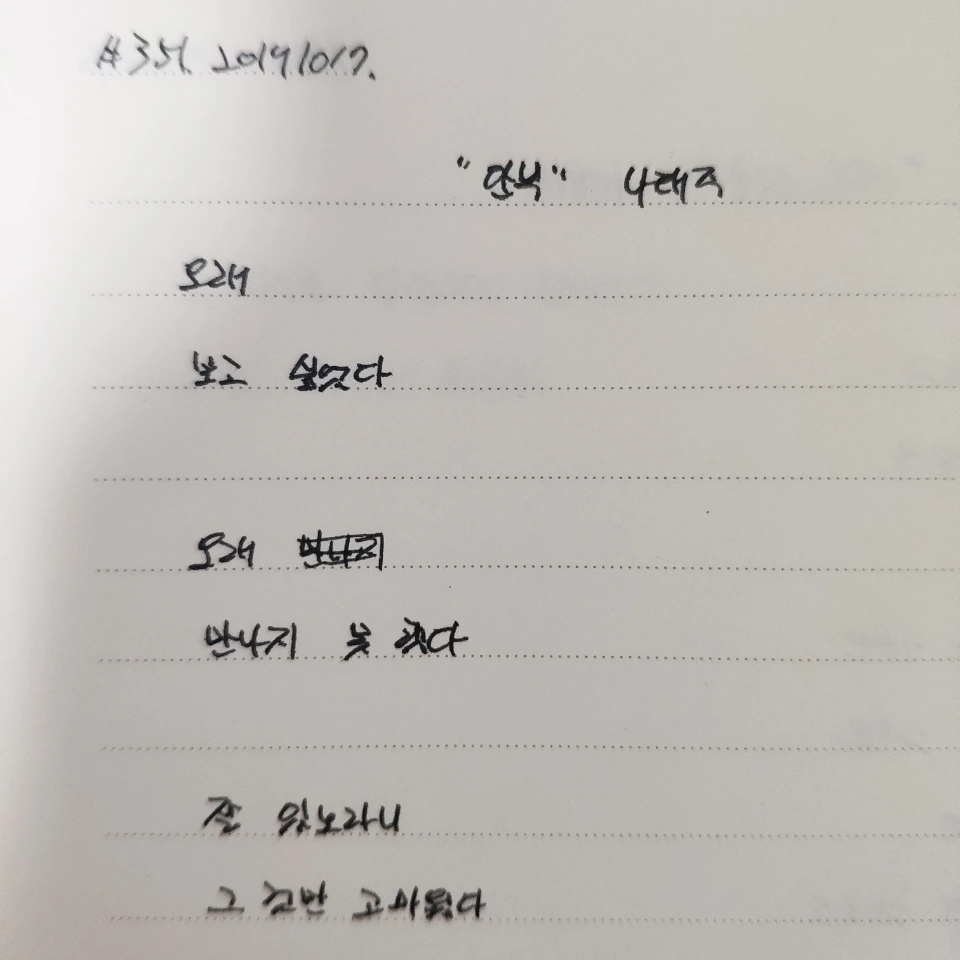 #351. 20191017.
"안부" 나태주
오래
보고 싶었다
오래
만나지 못 했다
잘 있노라니
그것만 고마웠다